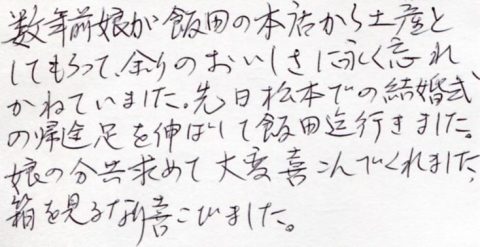 数年前娘が飯田の本店から土産と
してもらって、余りのおいしさに永く忘れ
かねていました。先日松本での結婚式
の帰途足を伸ばして飯田迄行きました。
娘の分共求めて大変喜こんでくれました、
箱を見るなり喜こびました。